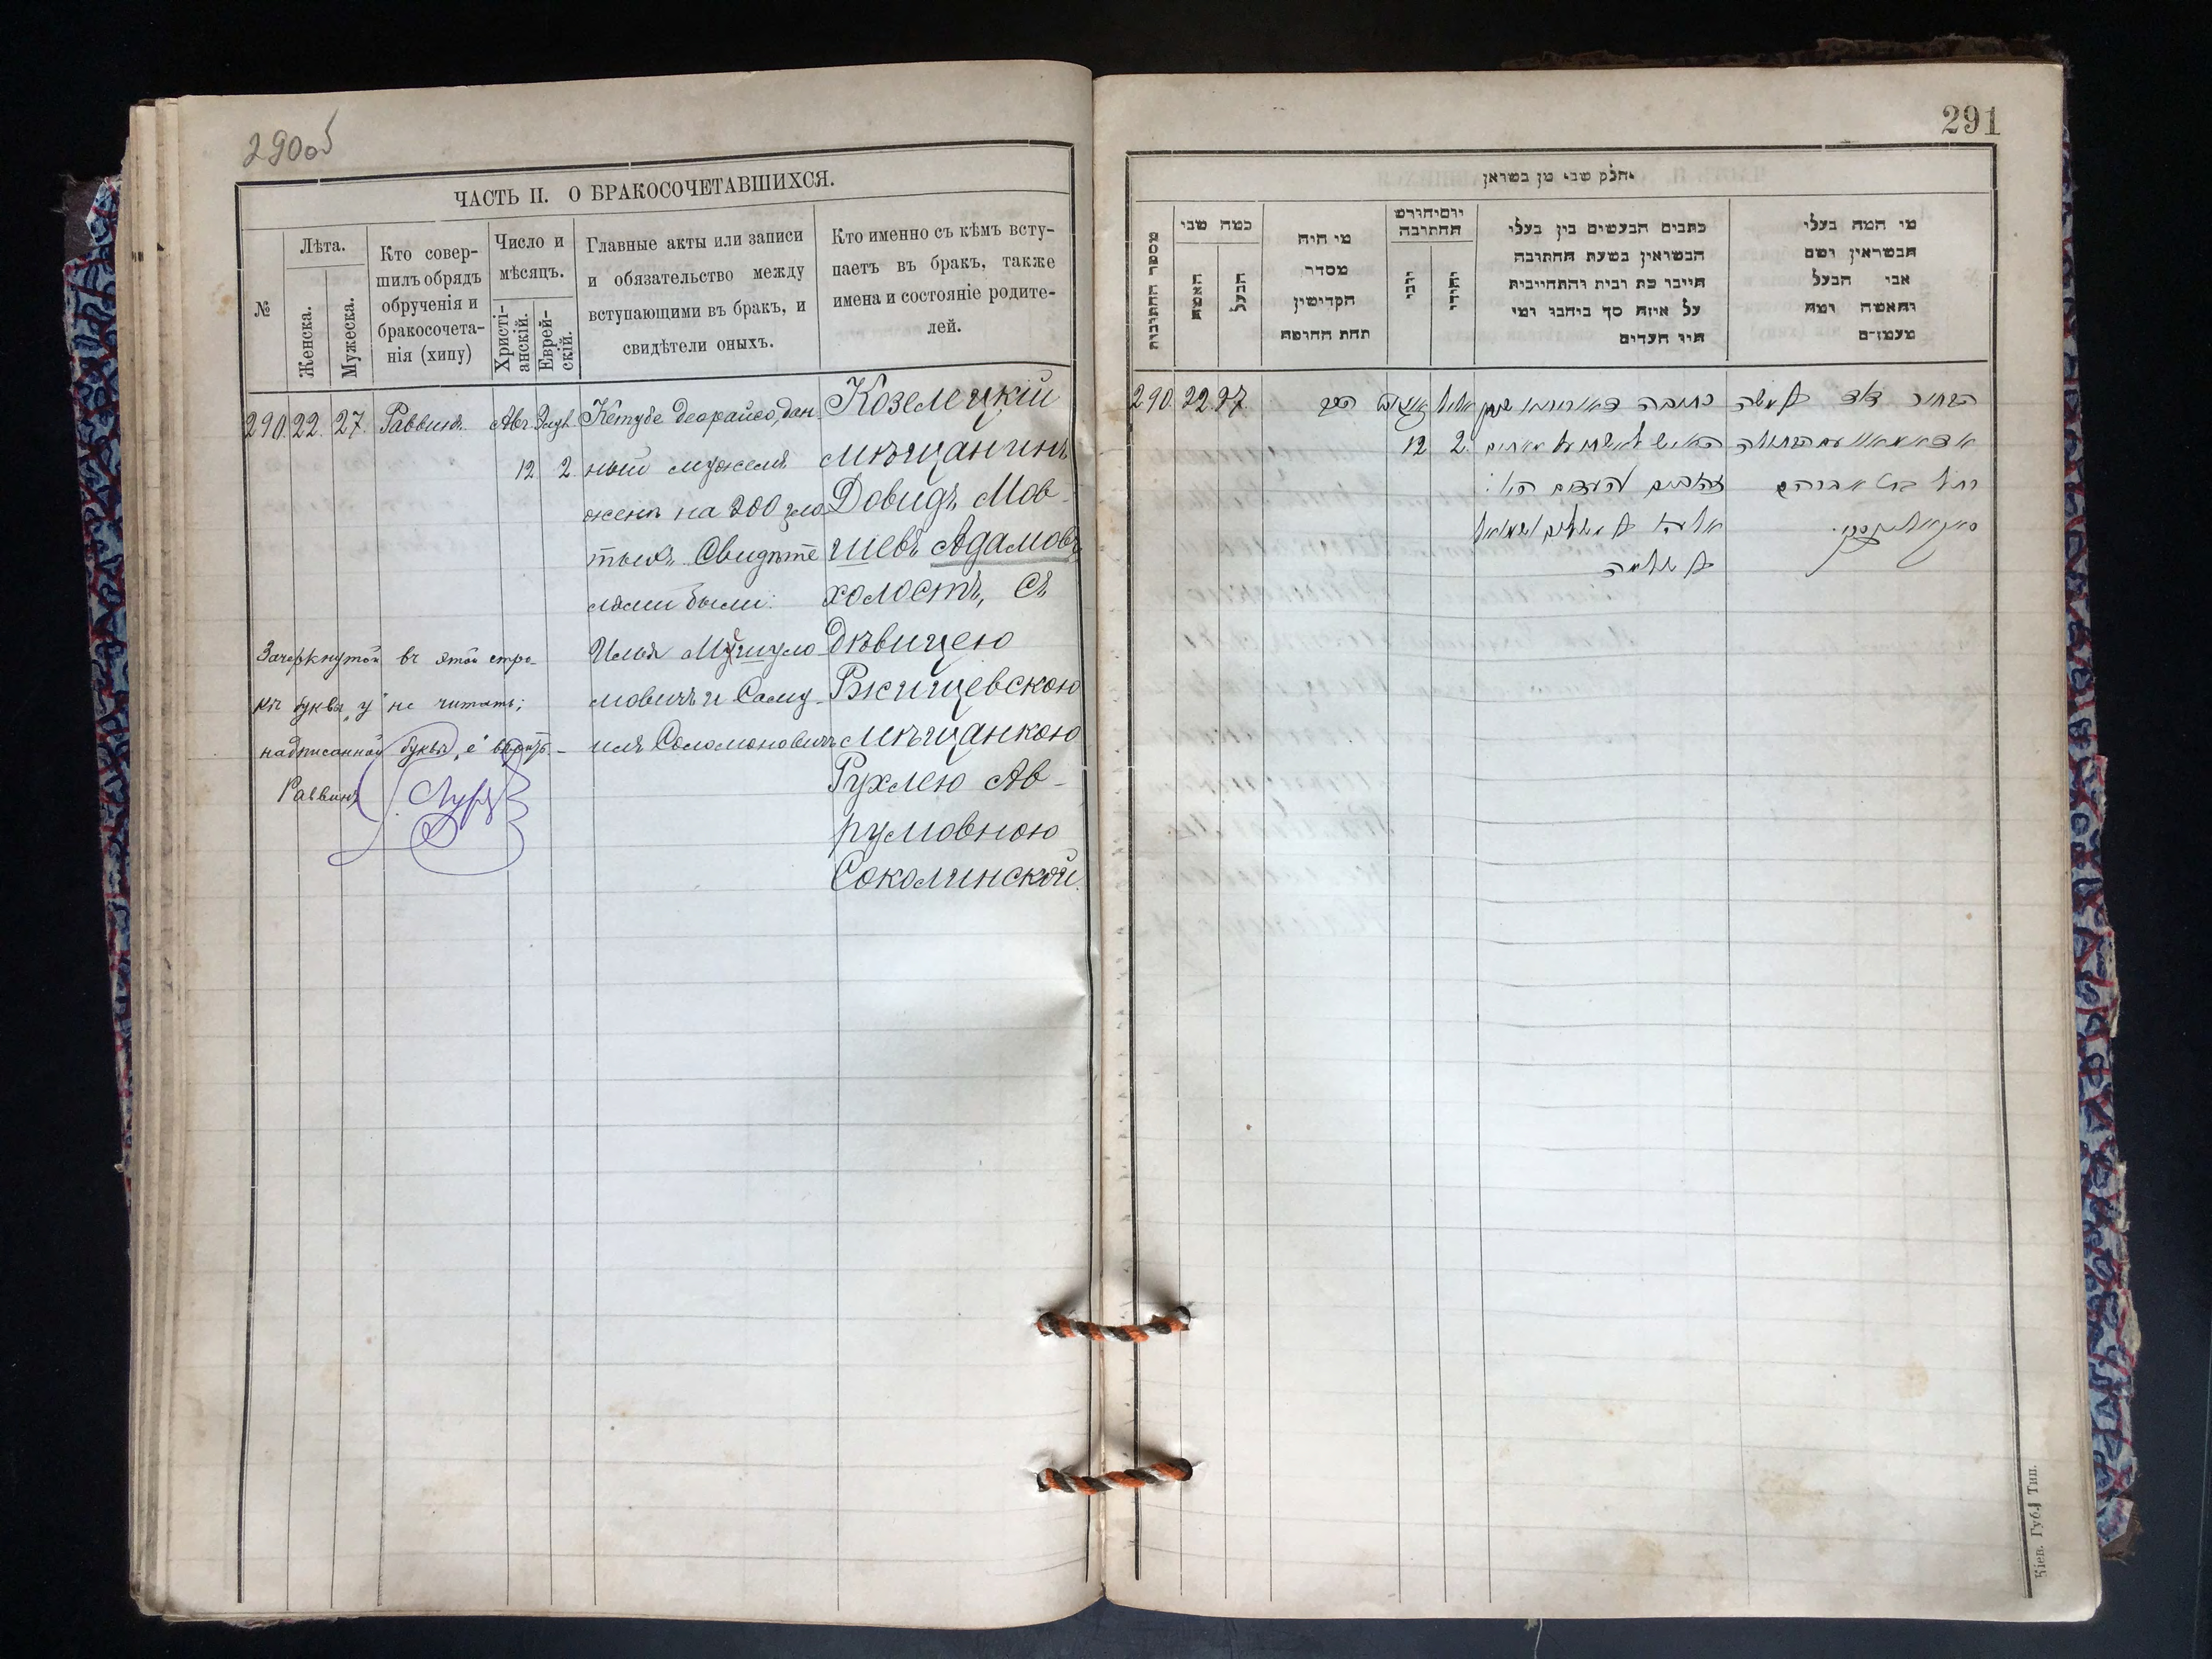 290об
ЧАСТЬ II. О БРАКОСОЧЕТАВШИХСЯ.
№
Лѣта.
Женска.
Мужеска.
Кто совер-
шилъ обрядъ
обрученія и
бракосочета-
нія (хипу)
Число и
мѣсяцъ.
Христі-
анскій.
Еврей-
скій.
Главные акты или записи
и обязательство между
вступающими въ бракъ, и
свидѣтели оныхъ.
Кто именно съ кѣмъ всту-
паетъ въ бракъ, также
имена и состояніе родите-
лей.
290. 22. 27. Раввинъ. Авг. Элул.
12 2
Кетубе деорайсо, дан-
ный мужемъ
женѣ на 200 зло-
тыхъ. Свидѣте
лями были:
Илья Мешуло
мовичъ и Саму-
илъ Соломоновичъ
Козелецкій
мѣщанинъ
Довидъ Мов-
шевъ Адамовъ,
холостъ, съ
Дѣвицею
Ржищевскою
мѣщанкою
Рухлею Ав-
румовною
Соколинской.
Зачеркнутой въ этой стро-
кѣ буквы „у" не читать;
надписанной букве „е"
Раввинъ
291
חלק שני מן נשואין
מספר החתונות
כמה שני
האשה
הבעל
מי היה
מסדר
הקדישין
תחת החופה
יום וחודש
החתונה
כתבים הנעשים בין בעלי
הנשואין בשעת החתונה
חיובי כת ובית והתחייבות
על איזה סך ניתנו ומי
היו העדים
מי המה בעלי
הנשואין ושם
אבי הבעל
והאשה ומה
מעמדם
290. 22. 27.
הרב
אלול
12 2
הבחור דוד בן משה
עם הבתולה
רחל בת אברהם
כתובה דאורייתא
בן שלמה
Кіев. Губ. Тип.